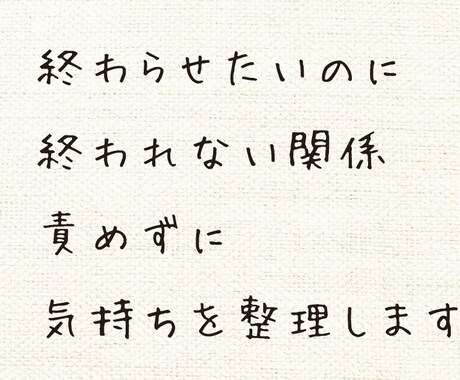 終わらせたいのに
終われない関係
責めずに
気持ちを整理します